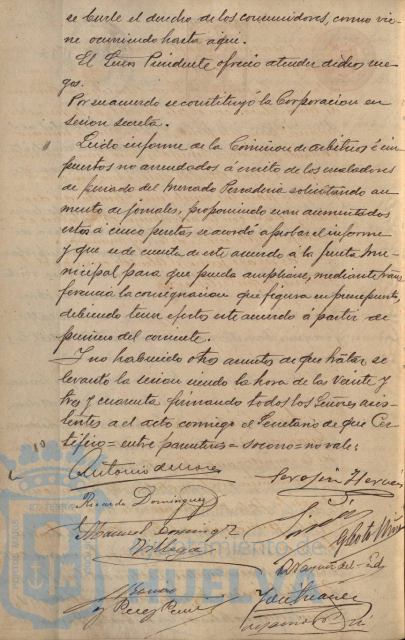 se burle el derecho de los consumidores, como vie-
ne ocurriendo hasta aqui.
El Señor Presidente ofreció atender dichos rue-
gos.
Por su acuerdo se constituyó la Corporacion en
sesion secreta.
Leido informe de la Comision de arbitrios é im-
puestos no arrendados á escrito de los
de pescado del Mercado Pescaderia solicitando au-
mento de jornales, proponiendo sean aumentados
estos á cinco pesetas, se acordó aprobar el informe
y que se de cuenta de este acuerdo á la Junta Mu-
nicipal para que pueda ampliarse, mediante trans-
ferencia la consignacion que figura en presupuesto,
debiendo tener efecto este acuerdo á partir de
primero del corriente.
Y no habiendo otros asuntos de que tratar, se
levantó la sesion siendo la hora de las veinte y
tres y cuarenta firmando todos los Señores asis-
tentes a el acto conmigo el Secretario de que Cer-
tifico = entre parentesis = socorro = no vale:
Antonio de Mora
Serafin
Ricardo Dominguez
Manuel Dominguez
y Perez
Ayuntamiento de
HUELVA